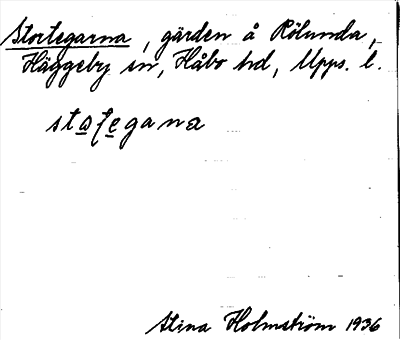 Stortegarna, gärden å Rölunda,
Häggeby sn, Håbo hd, Upps. l.
stafegana
Stina Holmström 1936